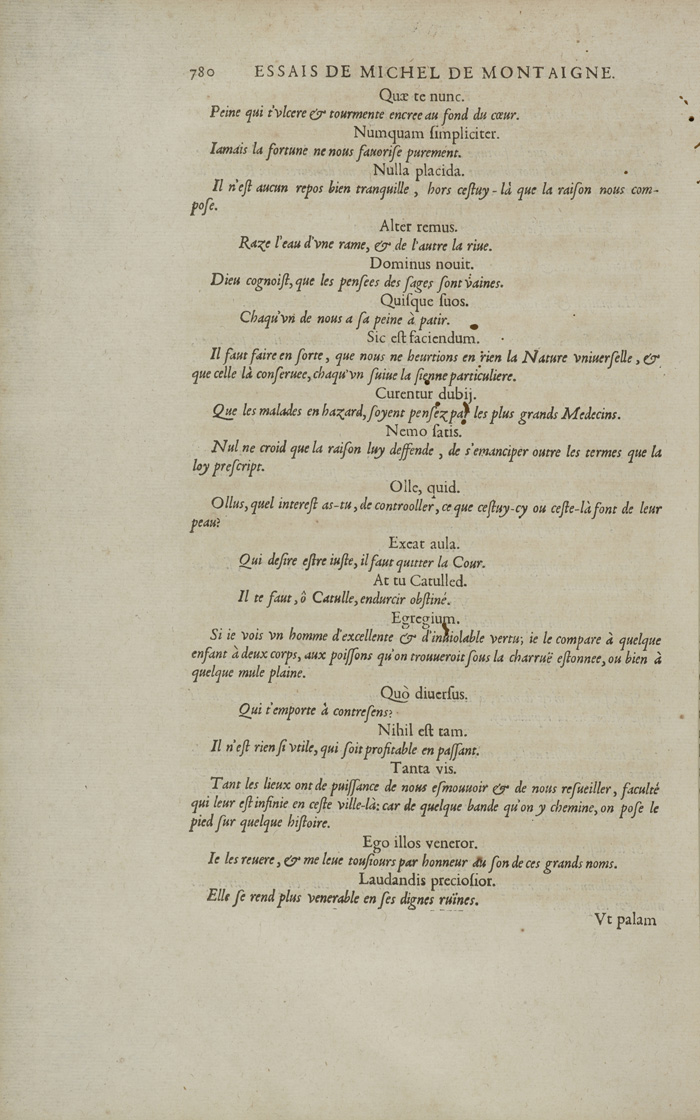 780 ESSAIS DE MICHEL DE MONTAIGNE.
Quæ te nunc.
Peine qui t'vlcere & tourmente encree au fond du cœur.
Numquam ſimpliciter.
Iamais la fortune ne nous fauoriſe purement.
Nulla placida.
Il n'eſt aucun repos bien tranquille, hors ceſtuy-là que la raiſon nous com-
poſe.
Alter remus.
Raze l'eau d'vne rame, & de l'autre la riue.
Dominus nouit.
Dieu cognoiſt, que les penſees des ſages ſont vaines.
Quiſque ſuos.
Chaqu'vn de nous a ſa peine à patir.
Sic eſt faciendum.
Il faut faire en ſorte, que nous ne heurtions en rien la Nature vniuerſelle, &
que celle là conſeruee, chaqu'vn ſuiue la ſienne particuliere.
Curentur dubij.
Que les malades en hazard, ſoyent penſez par les plus grands Medecins.
Nemo ſatis.
Nul ne croid que la raiſon luy deffende, de s'emanciper outre les termes que la
loy preſcript.
Olle, quid.
Ollus, quel intereſt as-tu, de controoller, ce que ceſtuy-cy ou ceſte-là font de leur
peau?
Exeat aula.
Qui deſire eſtre iuſte, il faut quitter la Cour.
At tu Catulled.
Il te faut, ô Catulle, endurcir obſtiné.
Egregium.
Si ie vois vn homme d'excellente & d'inuiolable vertu; ie le compare à quelque
enfant à deux corps, aux poiſſons qu'on trouueroit ſous la charruë eſtonnee, ou bien à
quelque mule plaine.
Quò diuerſus.
Qui t'emporte à contreſens?
Nihil eſt tam.
Il n'eſt rien ſi vtile, qui ſoit profitable en paſſant.
Tanta vis.
Tant les lieux ont de puiſſance de nous eſmouuoir & de nous reſueiller, faculté
qui leur eſt infinie en ceſte ville-là: car de quelque bande qu'on y chemine, on poſe le
pied ſur quelque hiſtoire.
Ego illos veneror.
Ie les reuere, & me leue touſiours par honneur au ſon de ces grands noms.
Laudandis precioſior.
Elle ſe rend plus venerable en ſes dignes ruïnes.
Vt palam